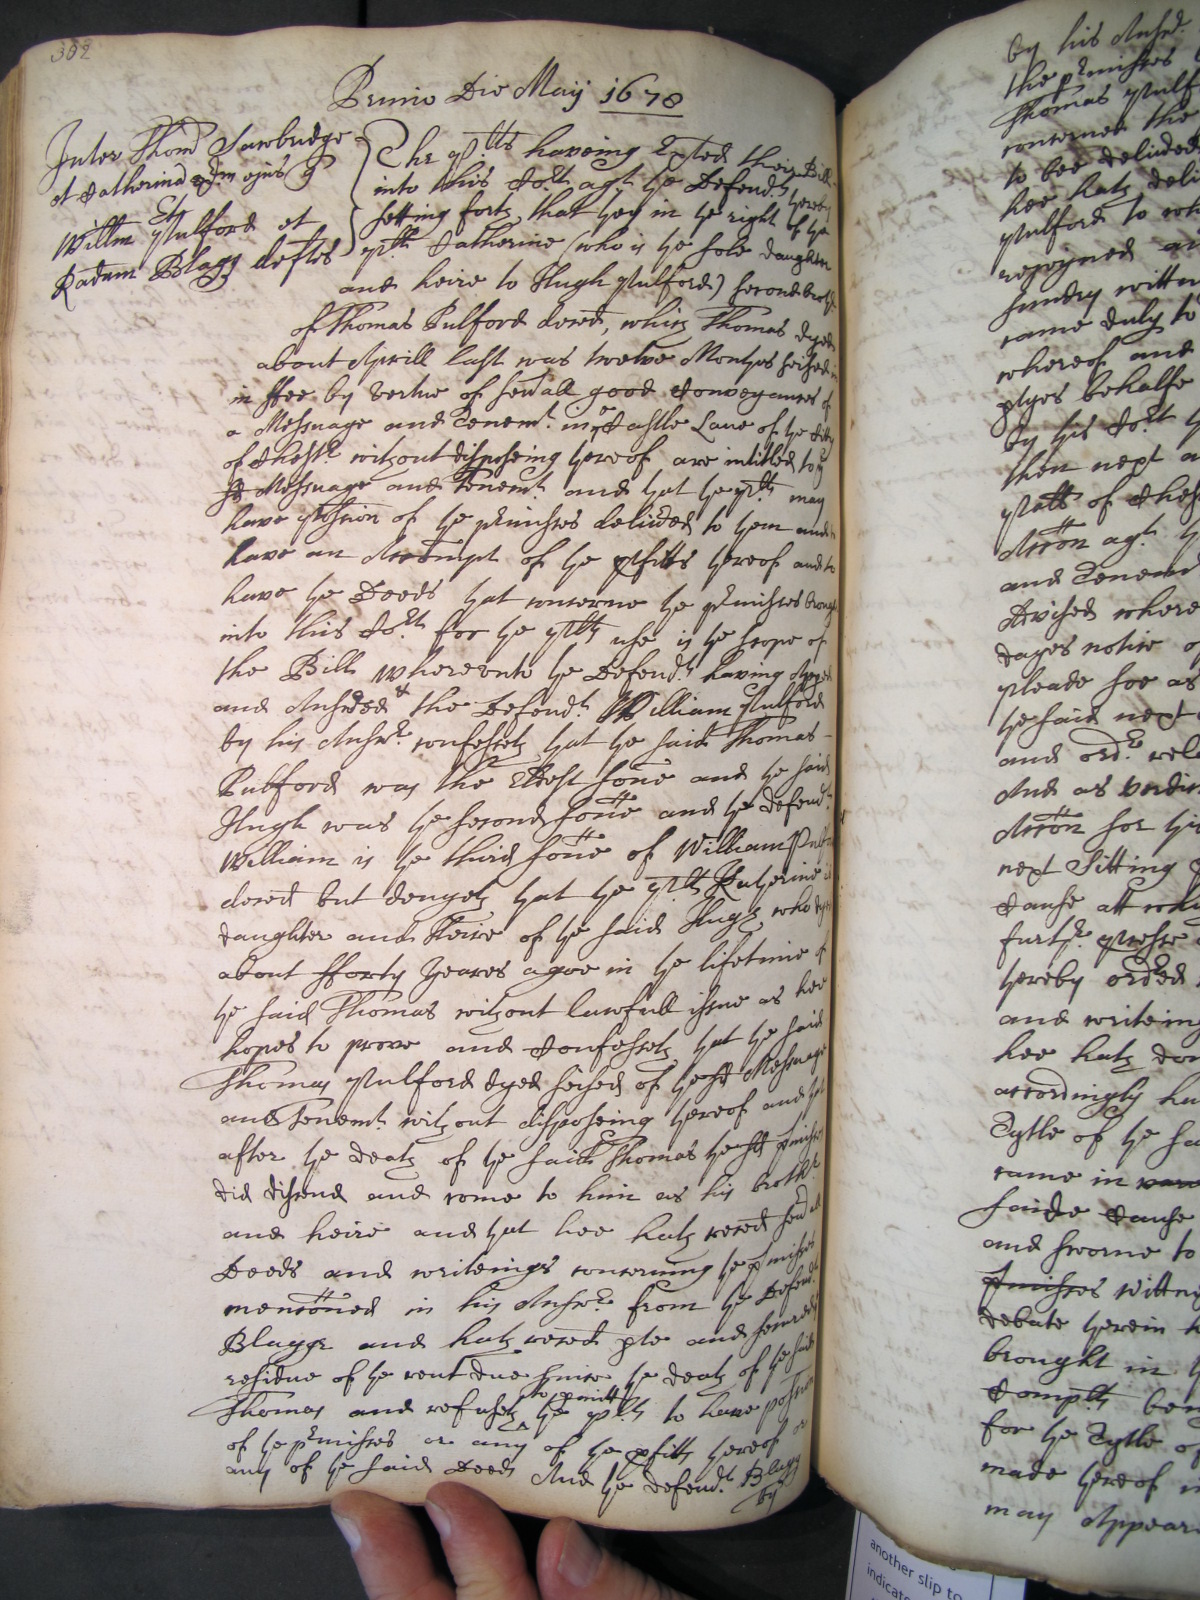 302
Primo Die Maij 1678
Inter Thom Sawbridge
et Catherina ejus
Willm Pulford et
Radum Blagg deftes
The pltts haveing Exted their Bill
into this Cort agt ye Defendts hereby
setting forth that they in ye right of ye
pltt Catherine (who is ye sole daughter
and heire to Hugh Pulford) second broth
of Thomas Pulford decd, which Thomas dyed
about Aprill last was twelve Monthes seised
in ffee by vertue of sevall good Conveyances of
a Messuage and Tenemt in ye Castle Lane of ye Citty
of Chestr without disposeing thereof are intitled to ye
sd Messuage and Tenemt and that ye pltts may
have possion of ye prmisses delived to them and
have an Accompt of ye pfitts thereof and to
have ye Deeds that concerne ye prmisses brought
into this Cort for ye pltts use is ye scope of
the Bill whereunto ye Defendts having Apped
and Answered the Defendt William Pulford
by his Answr confesseth that ye said Thomas
Pulford was the Eldest sonne and ye said
Hugh was ye second sonne and ye defendt
William is ye third sonne of William Pulf
decd but denyeth that ye pltt Katherine is
daughter and Heire of ye said Hugh who dyed
about fforty Yeares agoe in ye lifetime of
ye said Thomas without lawfull issue as hee
hopes to prove and Confesseth that ye said
Thomas Pulford dyed seised of ye sd Messuage
and Tenemt without disposeing thereof and yt
after ye death of ye said Thomas ye sd pmisses
did discend and come to him as his brothr
and heire and that hee hath reced sevall
Deeds and writeings concerning ye pmisses
mentioned in his Answr from ye Defendt
Blagge and hath reced pte and
residue of ye rent due since ye death of ye said
to pmitt
Thomas and refuseth ye pltts to have possion
of ye prmisses or any of ye pfitts thereof or
any of ye said Deeds And ye defendt Blagg
by
by his Answr
the prmisses
Thomas Pulf
concerne the
to bee delived
hee hath deli
Pulford to wh
rejoyned an
sundry wittn
came duly to
whereof and
ptyes behalfe
by this Cort
then next a
Pltts of Ches
Accon agt
and Tenemt
devised where
dayes notice of
pleade soe as
ye said next
and ordr rela
And as
Accon for
next Sitting
Cause att
furthr
hereby ordred
and writeing
hee hath don
accordingly ha
Tytle of ye sa
came in
saide Cause
and sworne to
pmisses wittn
debate herein
brought in
Complt
for ye Tytle of
made thereof
may Appear
another slip to
indicate